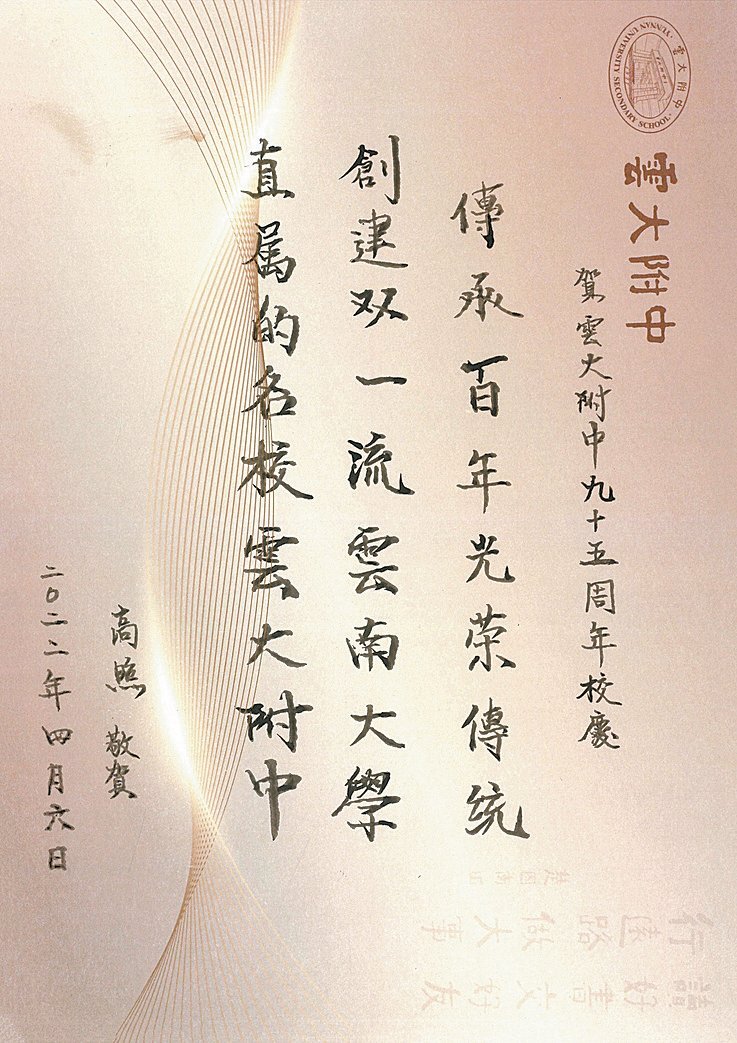 雲大附中
YUNNAN UNIVERSITY SECONDARY SCHOOL
雲大附中
賀雲大附中九十五周年校慶
傳承百年光荣傳统
創建双一流雲南大學
直属的名校雲大附中
高照 敬賀
二〇二二年四月六日
讀好書交好友
行遠路做大事